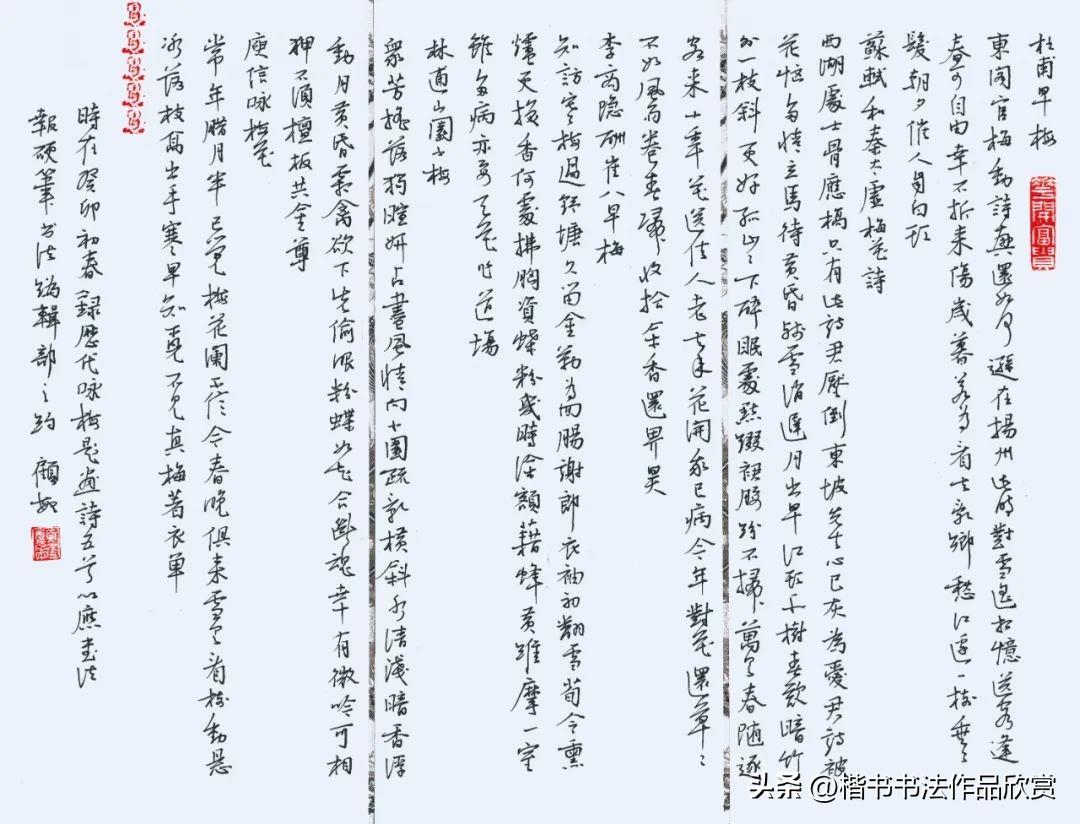 杜甫早梅
花開富貴
東閣官梅動詩興還如何遜在揚州此時對雪遙相憶送客逢
春可自由幸不折來傷歲暮若為看去亂鄉愁江邊一樹垂垂
髮朝夕催人自白頭
蘇軾和秦太虛梅花詩
西湖處士骨應槁只有此詩君壓倒東坡先生心已灰為愛君詩被
花惱多情立馬待黃昏殘雪消遲月出早江頭千樹春欲暗竹
外一枝斜更好孤山山下醉眠處點綴裙腰紛不掃萬里春隨逐
客來十年花送佳人老去年花開我已病今年對花還草草
不如風雨卷春歸收拾余香還畀昊
李商隐酬崔八早梅
知訪寒梅過野塘久留金勒為回腸謝郎衣袖初翻雪荀令熏
爐更換香何處拂胸資蝶粉幾時塗額藉蜂黃維摩一室
雖多病亦要天花作道場
林逋山園小梅
眾芳搖落獨暄妍占盡風情向小園疏影橫斜水清淺暗香浮
動月黃昏霜禽欲下先偷眼粉蝶如知合斷魂幸有微吟可相
狎不須檀板共金尊
庾信咏梅花
常年腊月半已覺梅花闌不信今春晚俱來雪里看樹動懸
冰落枝高出手寒早知覓不見真梅著衣單
時在癸卯初春錄歷代咏梅題畫詩五首以應書法
報硬筆書法編輯部之約
头条 @楷书书法作品欣赏